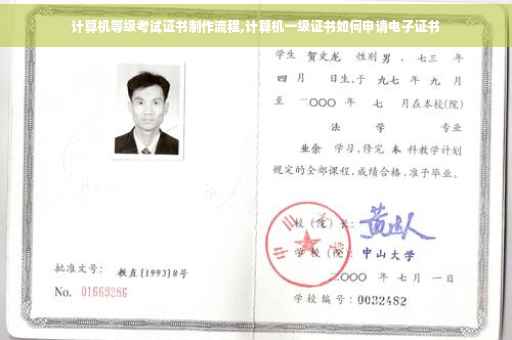 计算机等级考试证书制作流程,计算机一级证书如何申请电子证书
学生 贺文龙 性别 男 、七三 年
四 月 日生,于 九七 年 九 月
至 二〇〇〇 年 七 月在本校(院)
法 学 专业
业余 学习,修完 本 科教学计划
规定的全部课程,成绩合格,准予毕业。
校 (院) 长:
学 校 (院) 中山大学
二〇〇〇 年 七 月 一 日
批准文号: 教直[1993]8号
No. 01669286
学校编号: 0032482